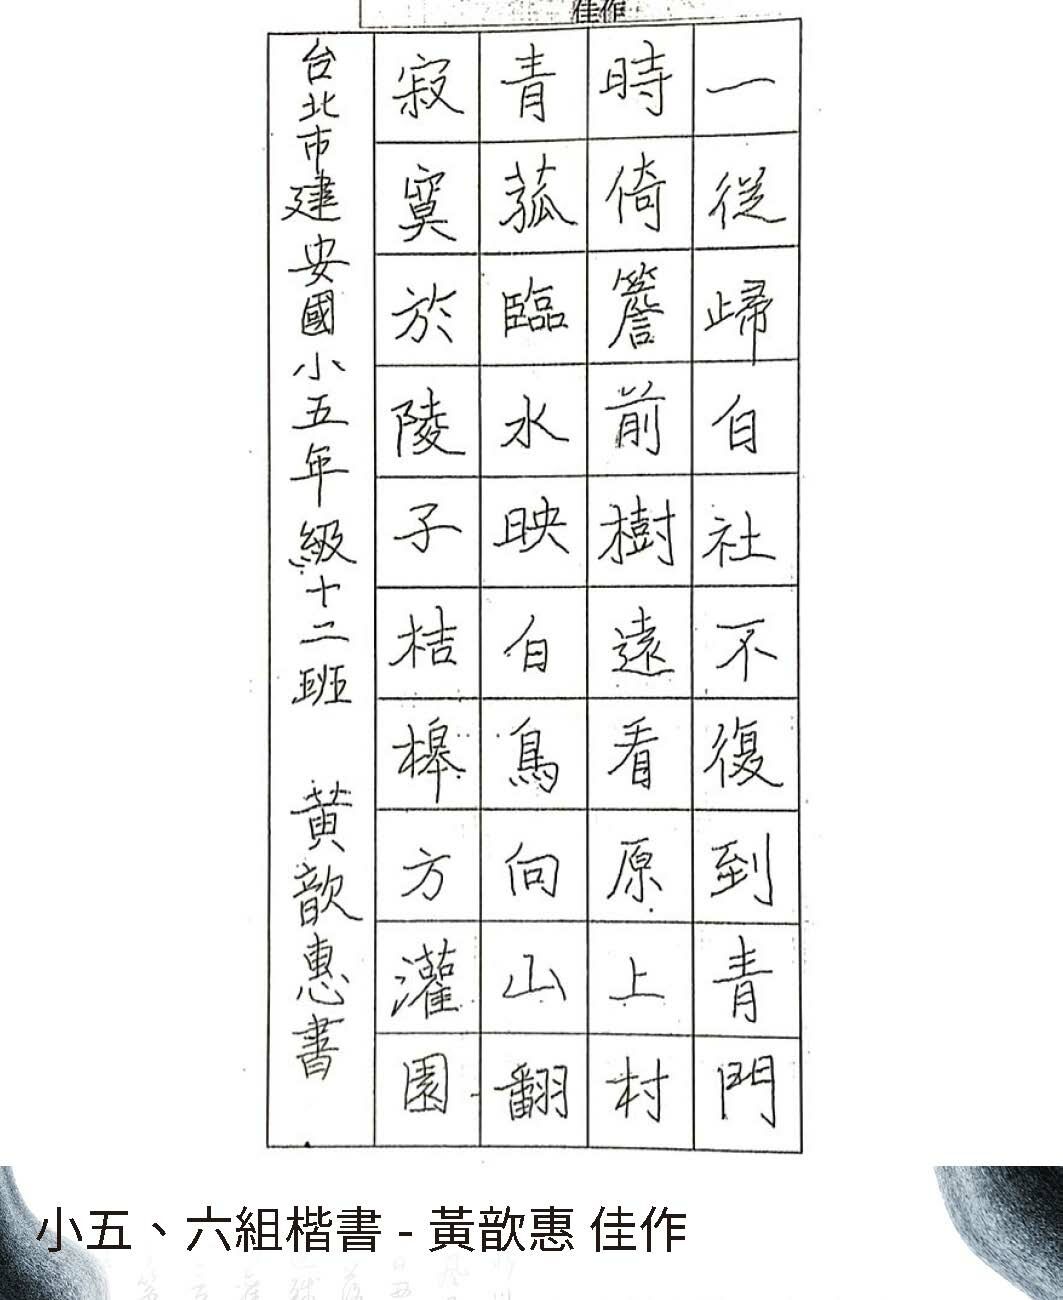 佳作
一從歸白社不復到青門
時倚簷前樹遠看原上村
青菰臨水映白鳥向山翻
寂寞於陵子桔槔方灌園
台北市建安國小五年級十二班 黃歆惠書
小五、六組楷書 - 黃歆惠 佳作